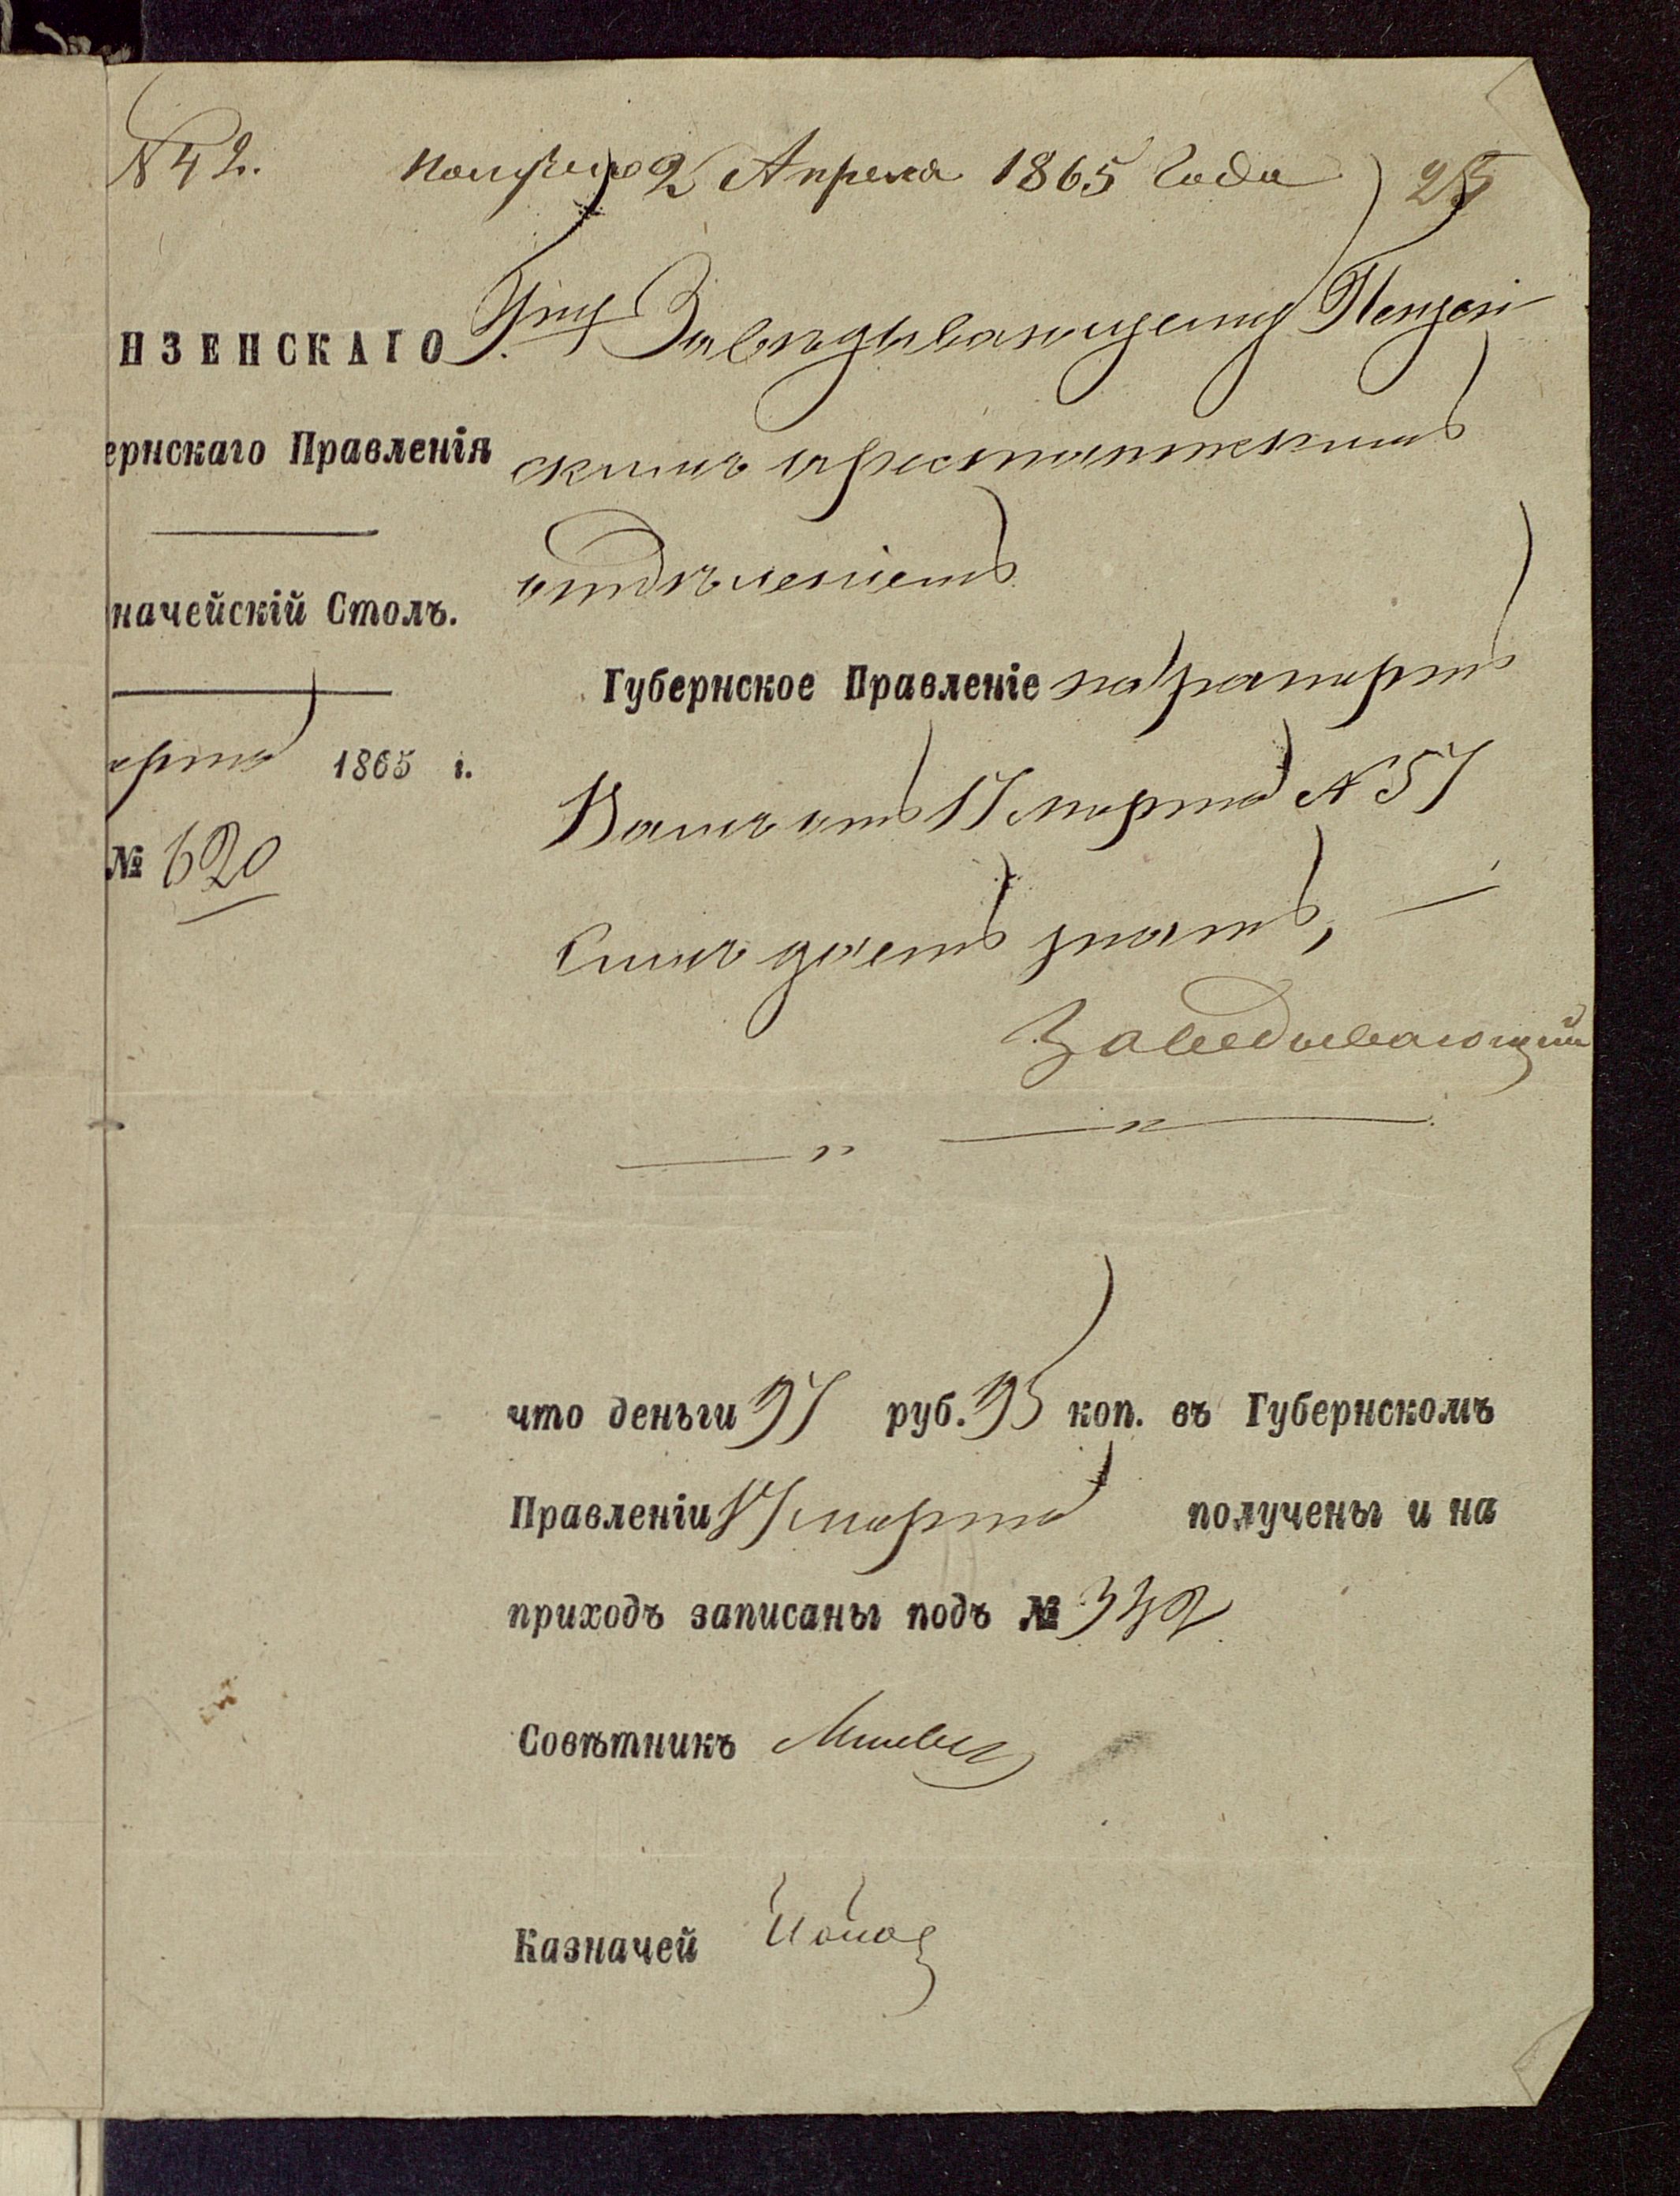 № 42. Получено 2 Апреля 1865 Года 25
НЗЕНСКАГО
ернскаго Правленія
начейскій Столъ.
арта 1865 г.
№ 620
Гну Завѣдывающему Пензен-
скимъ арестантскимъ
отдѣленіемъ
Губернское Правленіе на рапортъ
Вашъ отъ 17 марта № 57
Симъ даетъ знать,
Заведывающий
что деньги 97 руб. 95 коп. въ Губернскомъ
Правленіи 17 марта получены и на
приходъ записаны подъ № 342
Совѣтникъ
Казначей